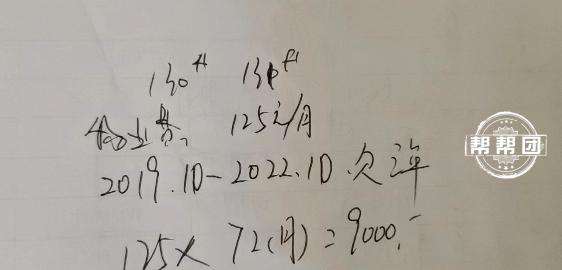 130# 131#
物业费 125元/月
2019.10-2022.10.欠三年
125×72(月)=9000.-
帮帮团